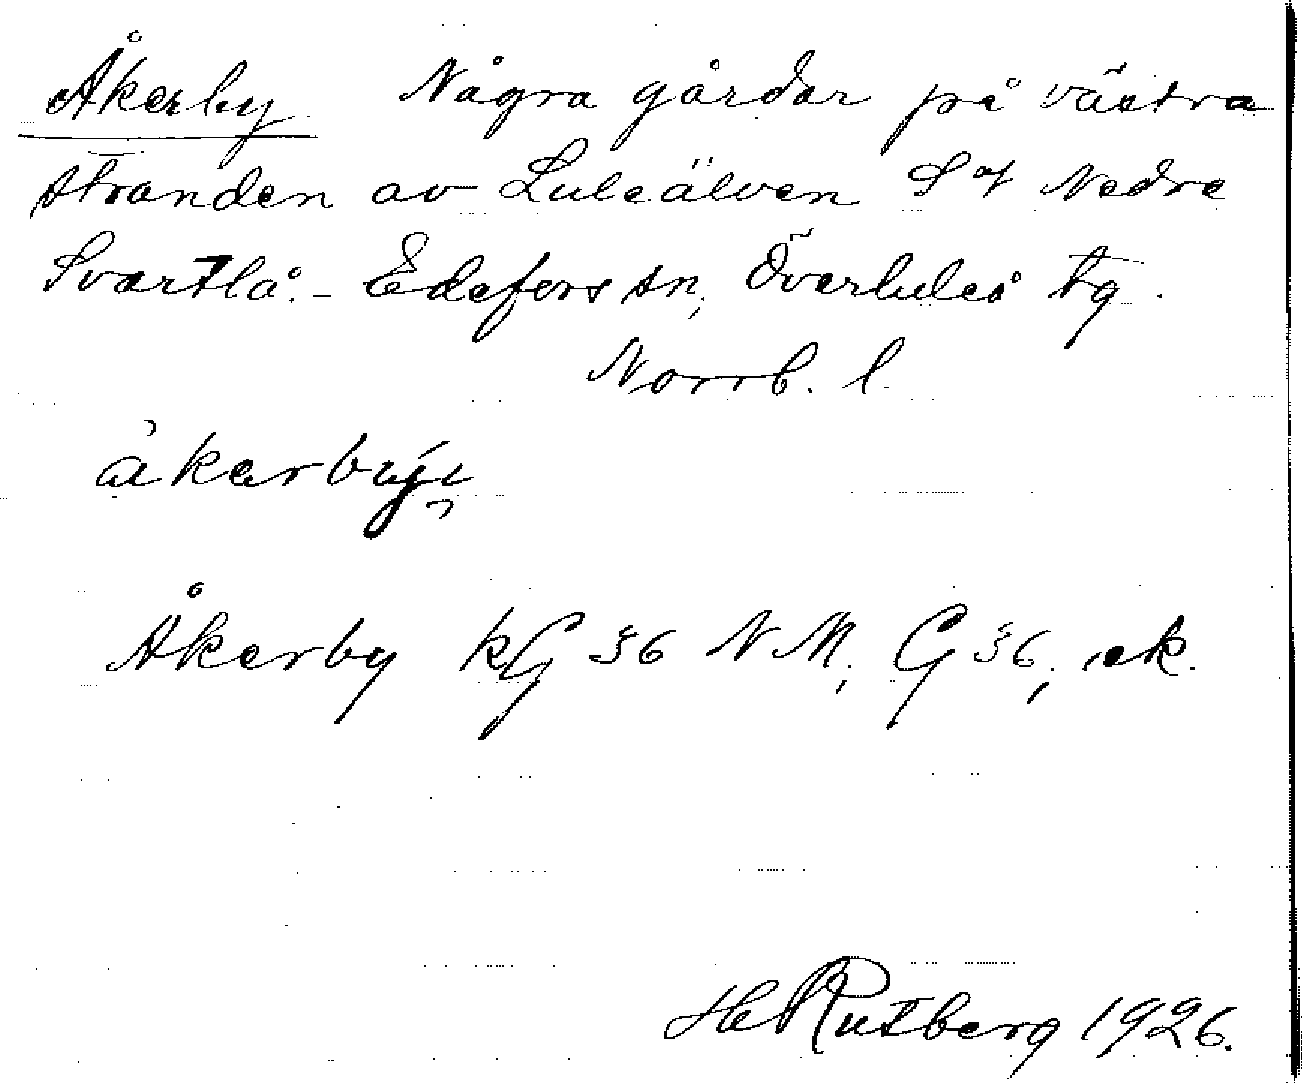 Åkerby Några gårdar på västra
stranden av Luleälven S of Nedre
Svartlå. - Edefors sn, Överluleå tg.
Norrb. l.
Åkerby kG 36 NM, G 36, ek.
H Rutberg 1926.